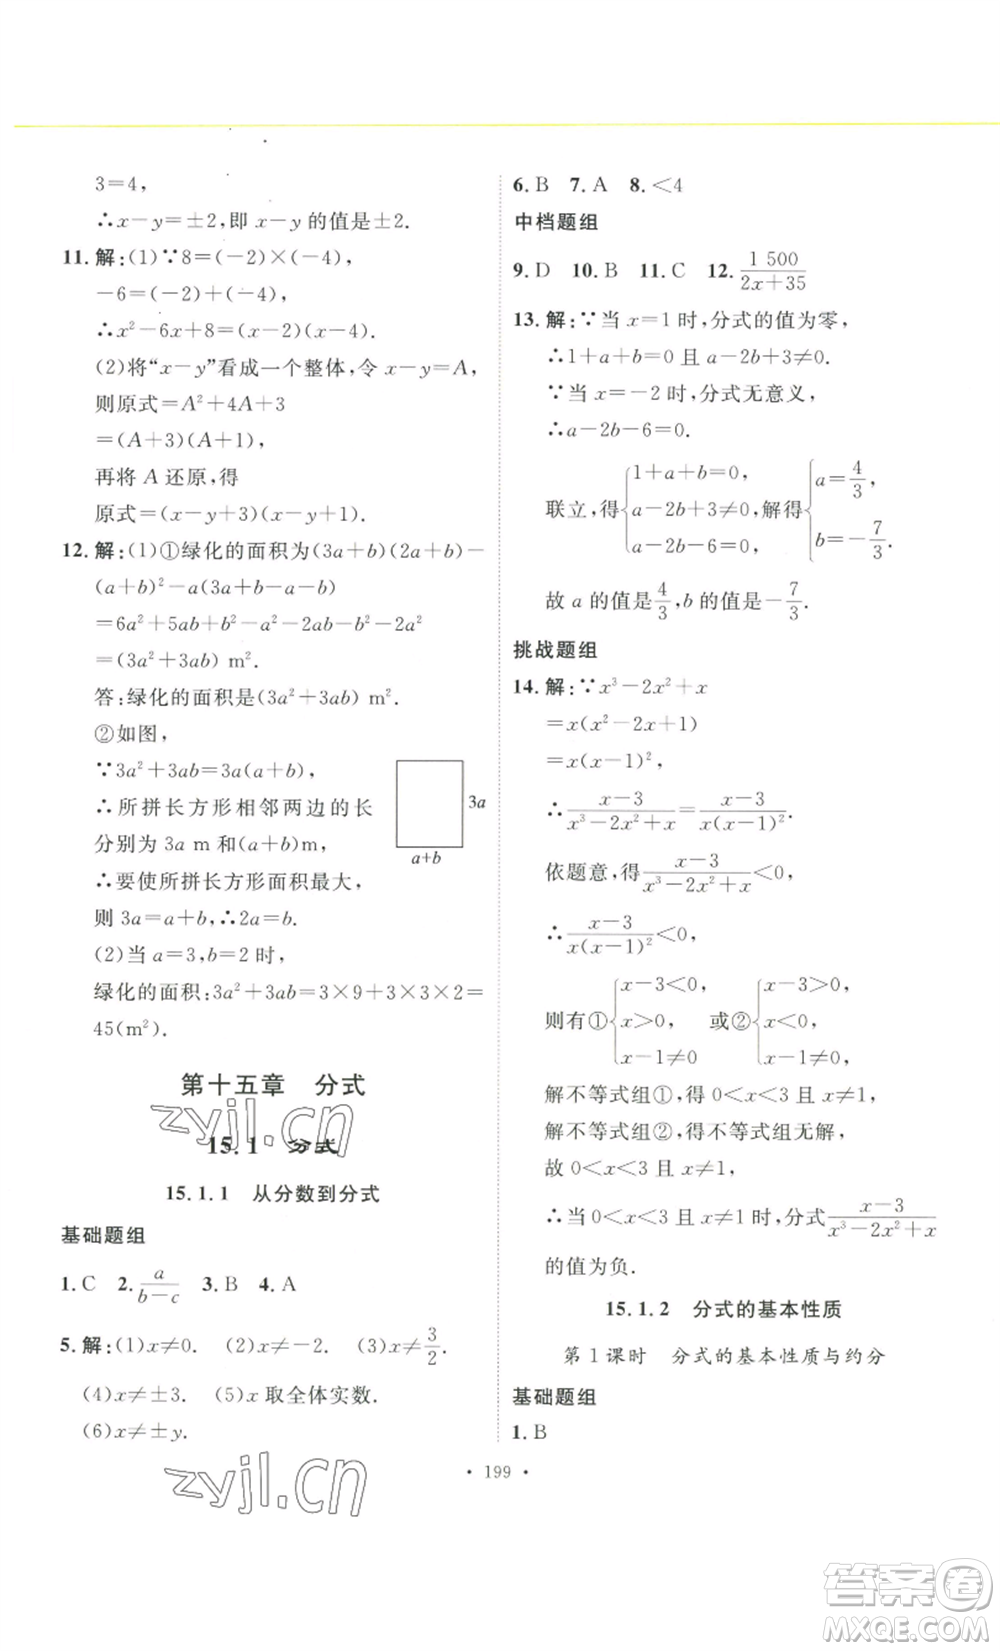 3=4,
∴x-y=±2,即 x-y 的值是±2.
11.解:(1)∵8=(-2)×(-4),
-6=(-2)+(-4),
∴x²-6x+8=(x-2)(x-4).
(2)将“x-y”看成一个整体,令 x-y=A,
则原式=A²+4A+3
=(A+3)(A+1),
再将 A 还原,得
原式=(x-y+3)(x-y+1).
12.解:(1)①绿化的面积为(3a+b)(2a+b)-
(a+b)²-a(3a+b-a-b)
=6a²+5ab+b²-a²-2ab-b²-2a²
=(3a²+3ab) m².
答:绿化的面积是(3a²+3ab) m².
②如图,
∵3a²+3ab=3a(a+b),
∴所拼长方形相邻两边的长
分别为 3a m 和(a+b)m,
3a
a+b
∴要使所拼长方形面积最大,
则 3a=a+b,∴2a=b.
(2)当 a=3,b=2 时,
绿化的面积:3a²+3ab=3×9+3×3×2=
45(m²).
第十五章 分式
zyjl.cn
15.1 分式
15.1.1 从分数到分式
基础题组
1.C 2.a/(b-c) 3.B 4.A
5.解:(1)x≠0. (2)x≠-2. (3)x≠3/2.
(4)x≠±3. (5)x 取全体实数.
(6)x≠±y.
zyjl.cn
6.B 7.A 8.<4
中档题组
9.D 10.B 11.C 12.1 500/(2x+35)
13.解:∵当 x=1 时,分式的值为零,
∴1+a+b=0 且 a-2b+3≠0.
∵当 x=-2 时,分式无意义,
∴a-2b-6=0.
联立,得{1+a+b=0, a-2b+3≠0, a-2b-6=0, 解得{a=4/3, b=-7/3.
故 a 的值是4/3,b 的值是-7/3.
挑战题组
14.解:∵x³-2x²+x
=x(x²-2x+1)
=x(x-1)²,
∴(x-3)/(x³-2x²+x)=(x-3)/(x(x-1)²).
依题意,得(x-3)/(x³-2x²+x)<0,
∴(x-3)/(x(x-1)²)<0,
则有①{x-3<0, x>0, x-1≠0 或②{x-3>0, x<0, x-1≠0,
解不等式组①,得 0<x<3 且 x≠1,
解不等式组②,得不等式组无解,
故 0<x<3 且 x≠1,
∴当 0<x<3 且 x≠1 时,分式(x-3)/(x³-2x²+x)
的值为负.
15.1.2 分式的基本性质
第 1 课时 分式的基本性质与约分
基础题组
1.B
• 199 •
答案圈
MXQE.COM